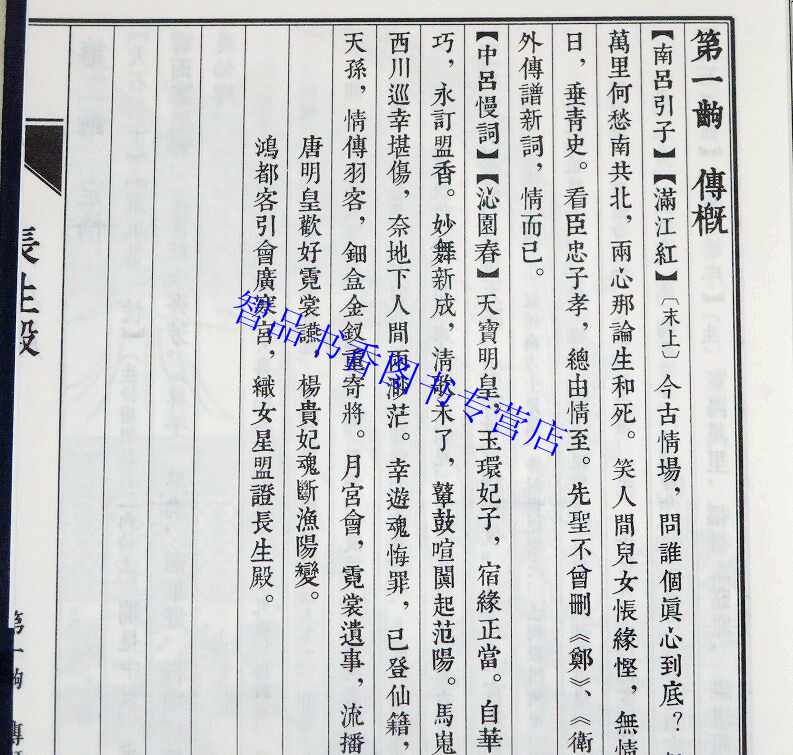 第一齣　傳概
【南呂引子】【滿江紅】〔末上〕今古情場，問誰個眞心到底？
萬里何愁南共北，兩心那論生和死。笑人間兒女悵緣慳，無情
日，垂青史。看臣忠子孝，總由情至。先聖不曾刪《鄭》、《衛
外傳譜新詞，情而已。
【中呂慢詞】【沁園春】天寶明皇，玉環妃子，宿緣正當。自華
巧，永訂盟香。妙舞新成，清歌未了，鼙鼓喧闐起范陽。馬嵬
西川巡幸堪傷，奈地下人間兩渺茫。幸遊魂悔罪，已登仙籍，
天孫，情傳羽客，鈿盒金釵重寄將。月宮會，霓裳遺事，流播
唐明皇歡好霓裳讌，楊貴妃魂斷漁陽變。
鴻都客引會廣寒宮，織女星盟證長生殿。
長生殿
第一齣　傳
智品书香图书专营店